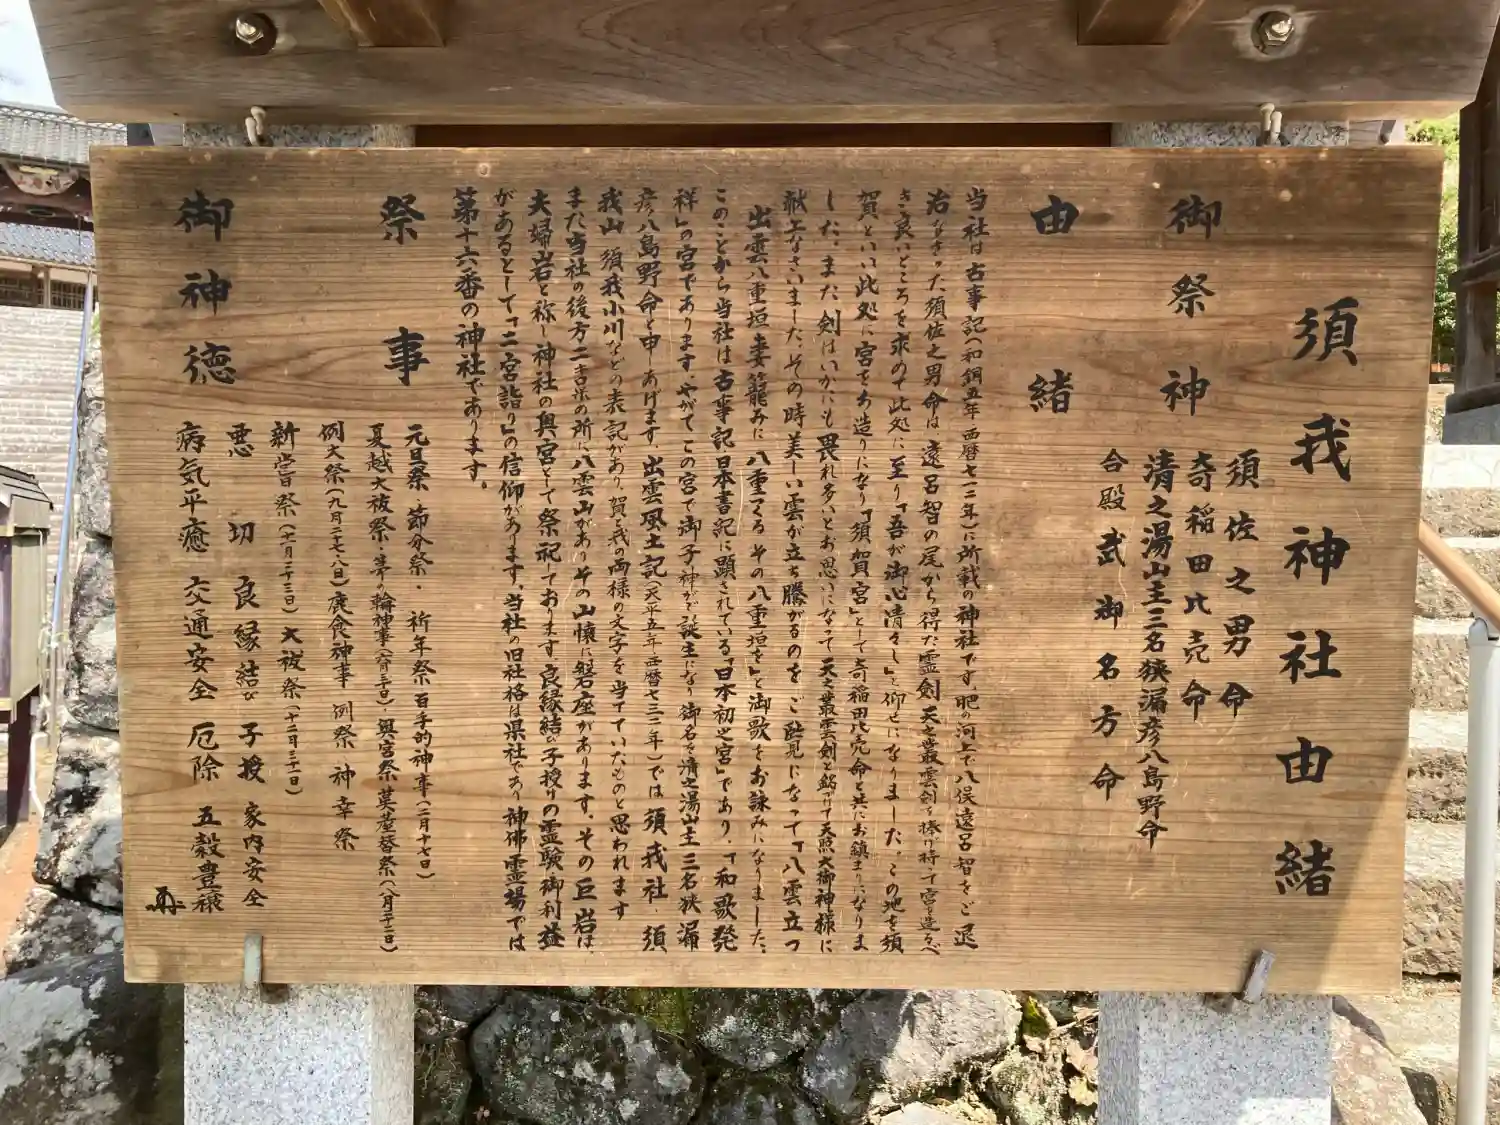 須我神社由緒
御祭神
須佐之男命
奇稲田比売命
清之湯山主三名狭漏彦八島野命
合殿 武御名方命
由緒
当社は古事記(和銅五年西暦七一二年)に所載の神社です。肥の河上で八俣遠呂智をご退
治なさった須佐之男命は遠呂智の尾から得た霊剣天之叢雲剣を捧げ持って宮を造るべ
き良いところを求めて此処に至り「吾が御心清々し」と仰せになりました。この地を須
賀といい此処に宮をお造りになり「須賀宮」として奇稲田比売命と共にお鎮まりになりま
した。また剣はいかにも畏れ多いとお思いになって天之叢雲剣と銘って天照大御神様に
献上なさいました。その時美しい雲が立ち騰がるのをご覧になって「八雲立つ
出雲八重垣妻籠みに八重垣つくるその八重垣を」と御歌をお詠みになりました。
このことから当社は古事記日本書記に顕されている「日本初之宮」であり、「和歌発
祥」の宮であります。やがてこの宮で御子神がご誕生になり御名を清之湯山主三名狭漏
彦八島野命と申しあげます。出雲風土記(天平五年西暦七三三年)では須我社・須
我山 須我小川などの表記があり賀と我の両様の文字を当てていたものと思われます
また当社の後方二吉米の所に八雲山がありその山懐に磐座があります。その巨岩は、
夫婦岩と称し神社の奥宮として祭祀ております。良縁結び子授りの霊験・御利益
があるとして「二宮詣り」の信仰があります。当社の旧社格は県社であり神佛霊場では
第十六番の神社であります。
祭事
元旦祭・節分祭・祈年祭 百手的神事(二月十七日)
夏越大祓祭・茅の輪神事(六月三十日)・奥宮祭 茣蓙替祭(八月二十二日)
例大祭(九月二七・八日)鹿食神事 例祭 神幸祭
新嘗祭(十一月二十三日)大祓祭(十二月三十一日)
御神徳
悪切 良縁結び 子授 家内安全
病気平癒 交通安全 厄除 五穀豊穣